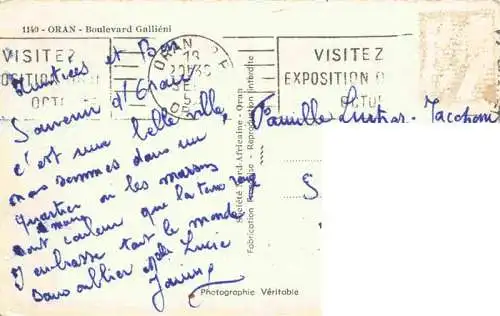 1140 - ORAN - Boulevard Galliéni
VISITEZ
EXPOSITION
OCT
ORAN
VISITEZ
EXPOSITION
OCTOB
Amitiés et Bon
Souvenir d'Oran
c'est une belle ville,
nous sommes dans un
quartier ou les maisons
sont couleur que la terre rouge
J'embrasse tout le monde
sans oublier Lucie
Famille
S
Société Nord-Africaine - Oran
Fabrication Française - Reproduction interdite
Photographie Véritable